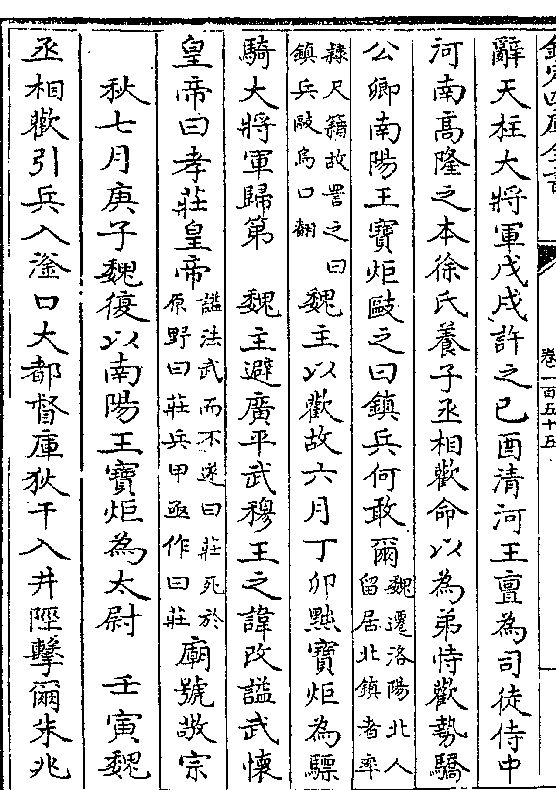 欽定四庫全書
卷一百五十五
辭天柱大將軍戊戌許之己酉清河王亶為司徒侍中
河南高隆之本徐氏養子丞相歡命以為弟恃歡勢驕
公卿南陽王寶炬毆之曰鎮兵何敢爾魏遷洛陽北人留居北鎮者率
隸尺籍故詈之曰鎮兵毆烏口翻魏主以歡故六月丁卯黜寶炬為驃
騎大將軍歸第 魏主避廣平武穆王之諱改諡武懷
皇帝曰孝莊皇帝諡法武而不遂曰莊死於原野曰莊兵甲亟作曰莊廟號敬宗
秋七月庚子魏復以南陽王寶炬為太尉 壬寅魏
丞相歡引兵入滏口大都督庫狄干入井陘擊爾朱兆